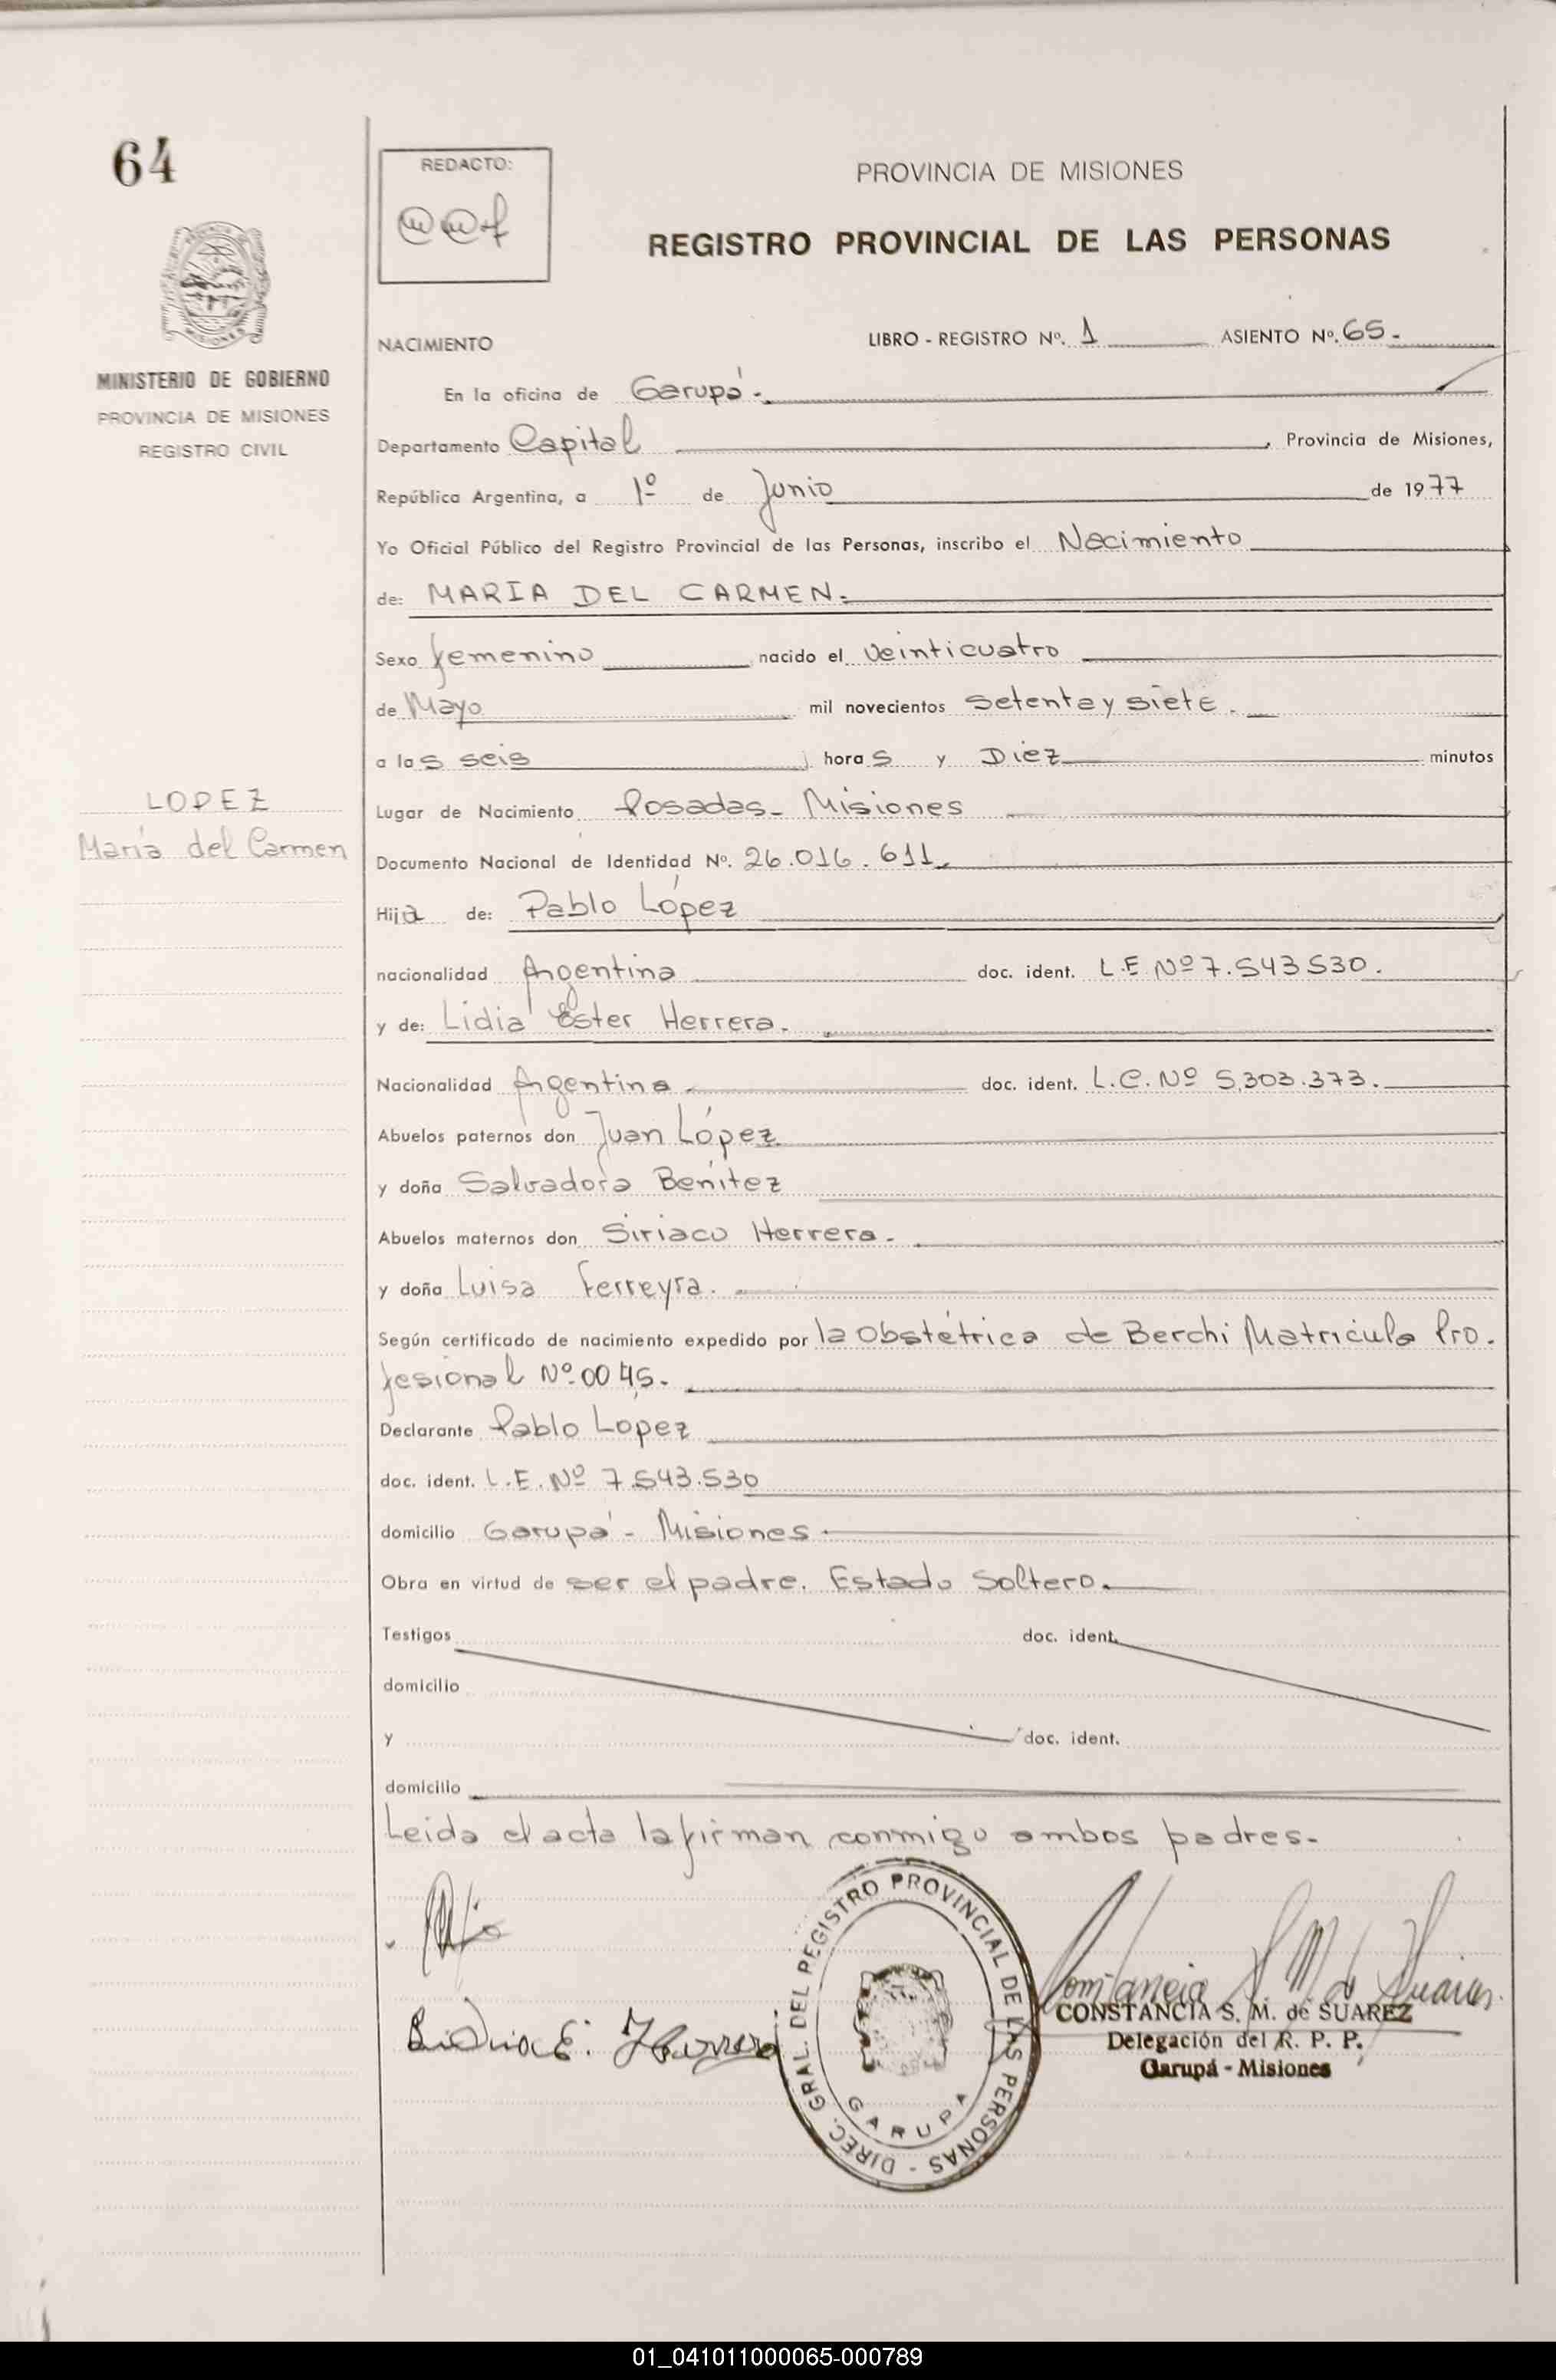 64
REDACTO:
PROVINCIA DE MISIONES
REGISTRO PROVINCIAL DE LAS PERSONAS
MINISTERIO DE GOBIERNO
PROVINCIA DE MISIONES
REGISTRO CIVIL
NACIMIENTO
LIBRO - REGISTRO Nº. 1 ASIENTO Nº. 65.-
En la oficina de Garupá.-
Departamento Capital, Provincia de Misiones,
República Argentina, a 1º de Junio de 1977
Yo Oficial Público del Registro Provincial de las Personas, inscribo el Nacimiento
de: MARIA DEL CARMEN.-
Sexo femenino nacido el veinticuatro
de Mayo mil novecientos setenta y siete.-
a las seis horas y Diez minutos
LOPEZ
María del Carmen
Lugar de Nacimiento Posadas- Misiones
Documento Nacional de Identidad Nº. 26.016.611.-
Hija de: Pablo López
nacionalidad Argentina doc. ident. L.E. Nº 7.543530.
y de: Lidia Ester Herrera.
Nacionalidad Argentina doc. ident. L.C. Nº 5.303.373.
Abuelos paternos don Juan López
y doña Salvadora Benítez
Abuelos maternos don Siriaco Herrera.-
y doña Luisa Ferreyra.
Según certificado de nacimiento expedido por la Obstétrica de Berchi Matrícula Pro.
fesional Nº 0045.-
Declarante Pablo López
doc. ident. L.E. Nº 7.543.530
domicilio Garupá - Misiones.
Obra en virtud de ser el padre. Estado Soltero.
Testigos doc. ident.
domicilio
y doc. ident.
domicilio
Leida el acta la firman conmigo ambos padres.-
Lidia E. Herrera
DIREC. GRAL. DEL REGISTRO PROVINCIAL DE LAS PERSONAS -
GARUPA
Constancia S M de Suarez
CONSTANCIA S. M. de SUAREZ
Delegación del R. P. P.
Garupá - Misiones
01_041011000065-000789